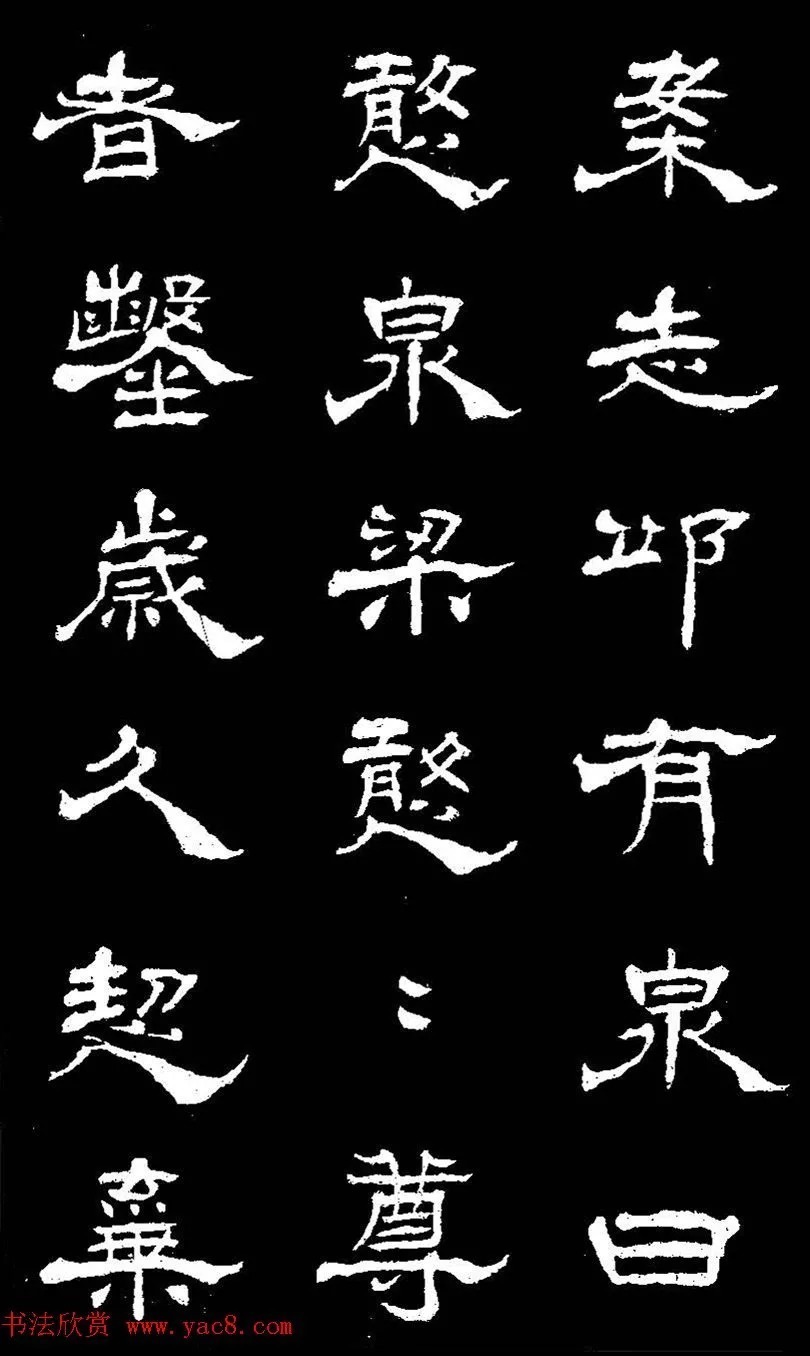 案志邱有泉曰
憨泉梁憨〻尊
者鑿歲久恝棄
书法欣赏 www.yac8.com